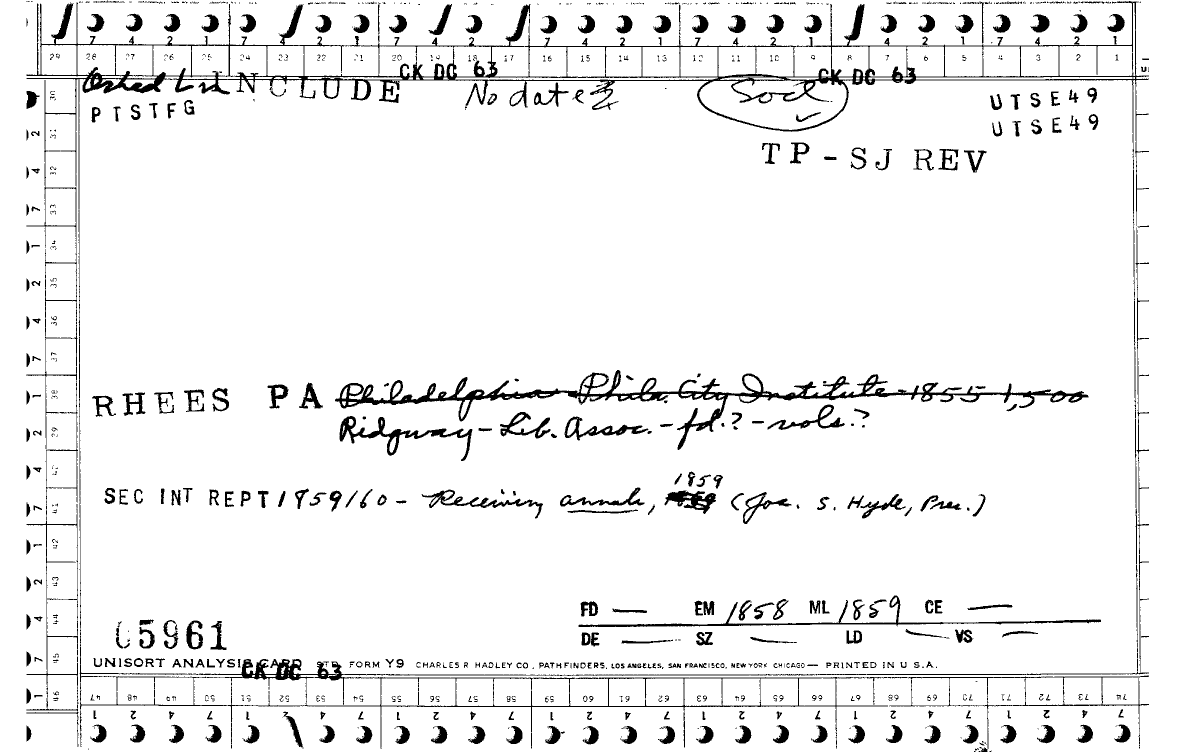 7 4 2 1 7 4 2 1 7 4 2 1 7 4 2 1 7 4 2 1 7 4 2 1 7 4 2 1
29 28 27 26 25 24 23 22 21 20 19 18 17 16 15 14 13 12 11 10 9 8 7 6 5 4 3 2 1
CK DC 63 CK DC 63
INCLUDE No date Soc
PTSTFG UTSE49
UTSE49
TP-SJ REV
RHEES PA Philadelphia - Phila. City Institute - 1855 1,500
Ridgway - Lib. Assoc. - fd.? - vols.?
1859
SEC INT REPT 1859/60 - Receiving annals, (Jos. S. Hyde, Pres.)
FD — EM 1858 ML 1859 CE —
DE — SZ — LD — VS —
05961
UNISORT ANALYSIS CARD STD. FORM Y9 CHARLES R HADLEY CO., PATHFINDERS, LOS ANGELES, SAN FRANCISCO, NEW YORK CHICAGO — PRINTED IN U.S.A.
CK DC 63
47 48 49 50 51 52 53 54 55 56 57 58 59 60 61 62 63 64 65 66 67 68 69 70 71 72 73 74
1 2 4 7 1 2 4 7 1 2 4 7 1 2 4 7 1 2 4 7 1 2 4 7 1 2 4 7